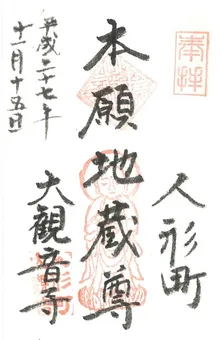 奉拝
人形町
本願地蔵尊
大観音寺
平成二十七年
十二月十五日